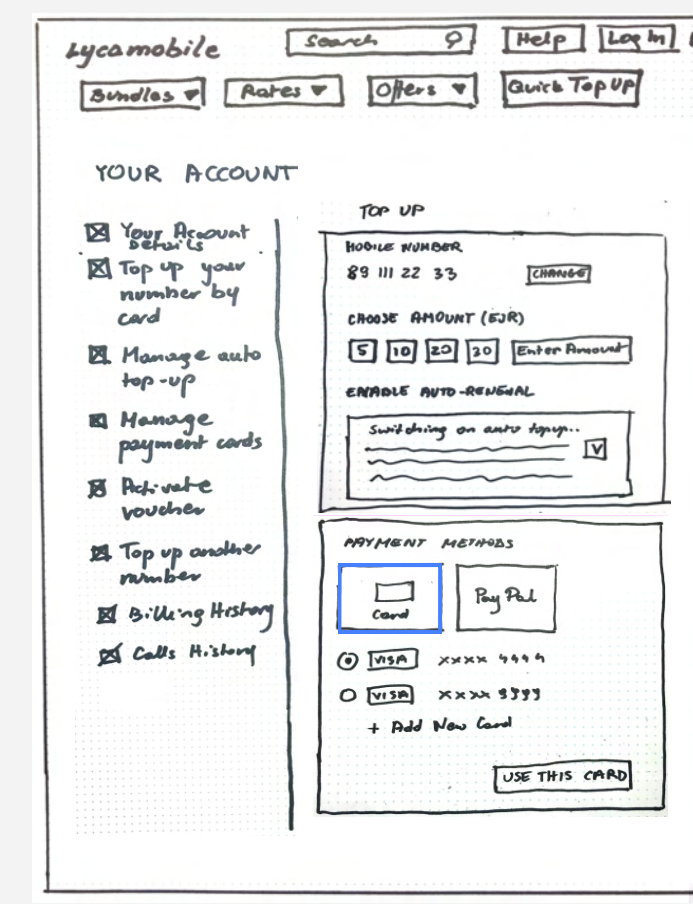 Lycamobile
Search
Help
Log In
Bundles ▼
Rates ▼
Offers ▼
Quick Top Up
YOUR ACCOUNT
Your Account
Details
Top up your
number by
card
Manage auto
top-up
Manage
payment cards
Activate
voucher
Top up another
number
Billing History
Calls History
TOP UP
MOBILE NUMBER
89 111 22 33
CHANGE
CHOOSE AMOUNT (EUR)
5
10
20
30
Enter Amount
ENABLE AUTO-RENEWAL
Switching on auto topup..
V
PAYMENT METHODS
Card
PayPal
VISA xxxx 4444
VISA xxxx 9999
+ Add New Card
USE THIS CARD